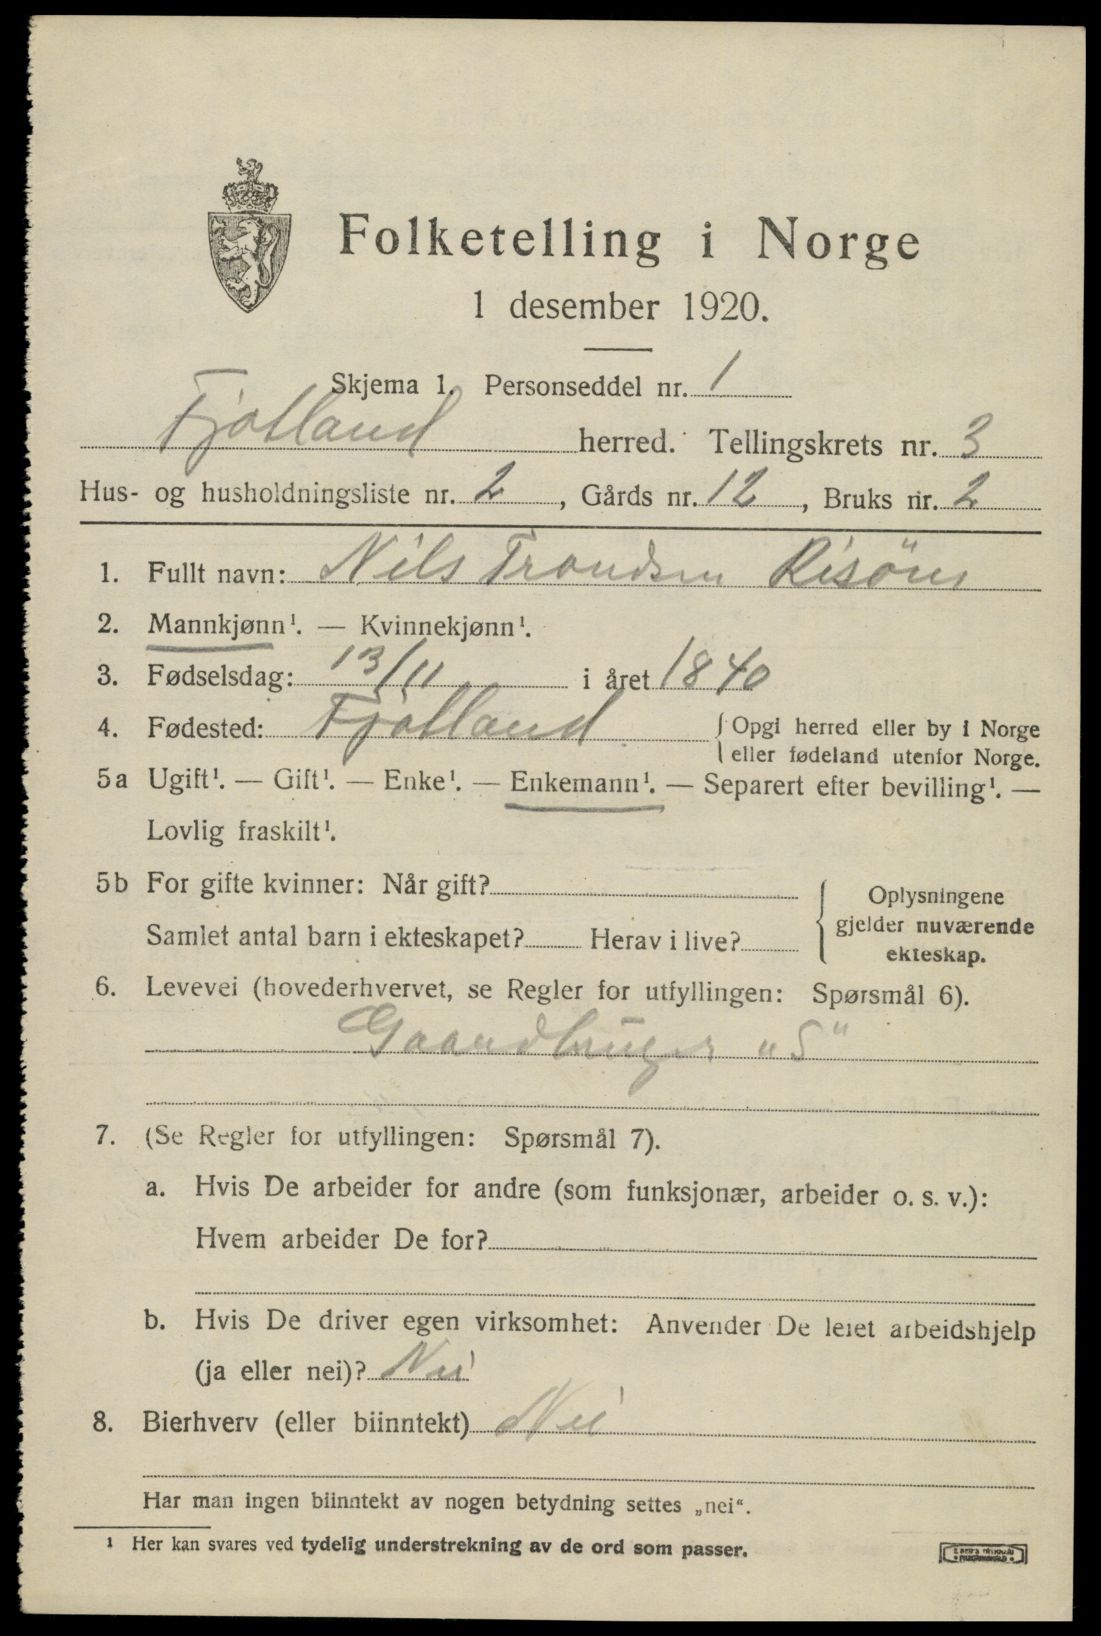 Folketelling i Norge
1 desember 1920.
Skjema 1. Personseddel nr. 1
Fjotland herred. Tellingskrets nr. 3
Hus- og husholdningsliste nr. 2, Gårds nr. 12, Bruks nr. 2
1. Fullt navn: Nils Trondsen
2. Mannkjønn¹. — Kvinnekjønn¹.
3. Fødselsdag: 13/11 i året 1840
4. Fødested: Fjotland { Opgi herred eller by i Norge
eller fødeland utenfor Norge.
5a Ugift¹. — Gift¹. — Enke¹. — Enkemann¹. — Separert efter bevilling¹. —
Lovlig fraskilt¹.
5b For gifte kvinner: Når gift?
Samlet antal barn i ekteskapet? Herav i live?
{ Oplysningene
gjelder nuværende
ekteskap.
6. Levevei (hovederhvervet, se Regler for utfyllingen: Spørsmål 6).
Gaardbruger „S"
7. (Se Regler for utfyllingen: Spørsmål 7).
a. Hvis De arbeider for andre (som funksjonær, arbeider o. s. v.):
Hvem arbeider De for?
b. Hvis De driver egen virksomhet: Anvender De leiet arbeidshjelp
(ja eller nei)? Nei
8. Bierhverv (eller biinntekt) Nei
Har man ingen biinntekt av nogen betydning settes „nei“.
¹ Her kan svares ved tydelig understrekning av de ord som passer.